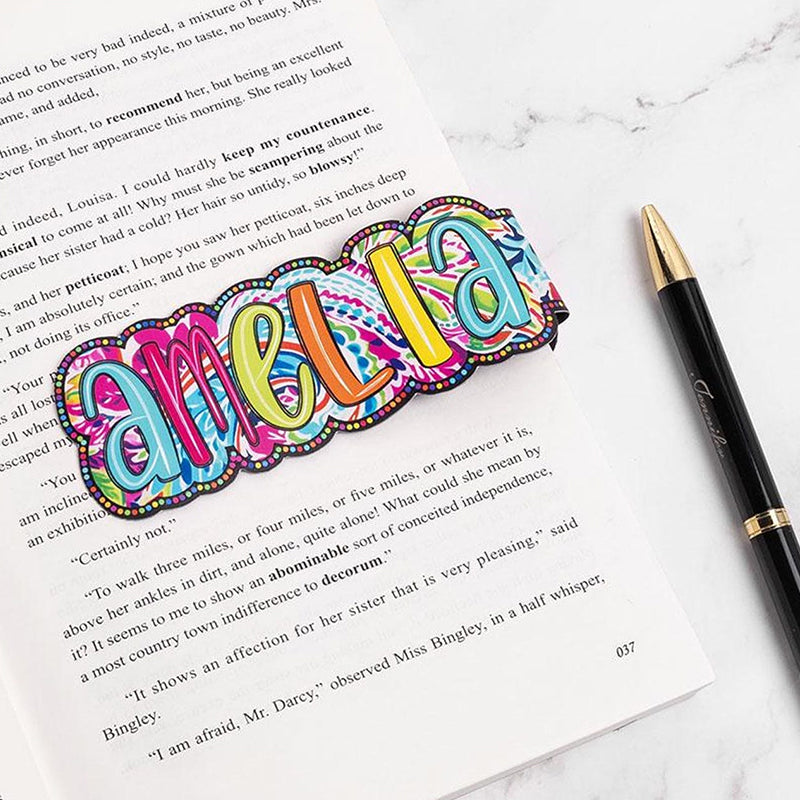 nced to be very bad indeed, a mixture of p
ad no conversation, no style, no taste, no beauty. Mrs.
ame, and added,
hing, in short, to recommend her, but being an excellent
ever forget her appearance this morning. She really looked
d indeed, Louisa. I could hardly keep my countenance.
nsical to come at all! Why must she be scampering about the
cause her sister had a cold? Her hair so untidy, so blowsy!”
s, and her petticoat; I hope you saw her petticoat, six inches deep
, I am absolutely certain; and the gown which had been let down to
, not doing its office.”
“Your
s all lost
ell when
escaped my
amelia
“You
am incline
an exhibition
“Certainly not.”
“To walk three miles, or four miles, or five miles, or whatever it is,
above her ankles in dirt, and alone, quite alone! What could she mean by
it? It seems to me to show an abominable sort of conceited independence,
a most country town indifference to decorum.”
“It shows an affection for her sister that is very pleasing,” said
Bingley.
“I am afraid, Mr. Darcy,” observed Miss Bingley, in a half whisper,
037
Jennifer